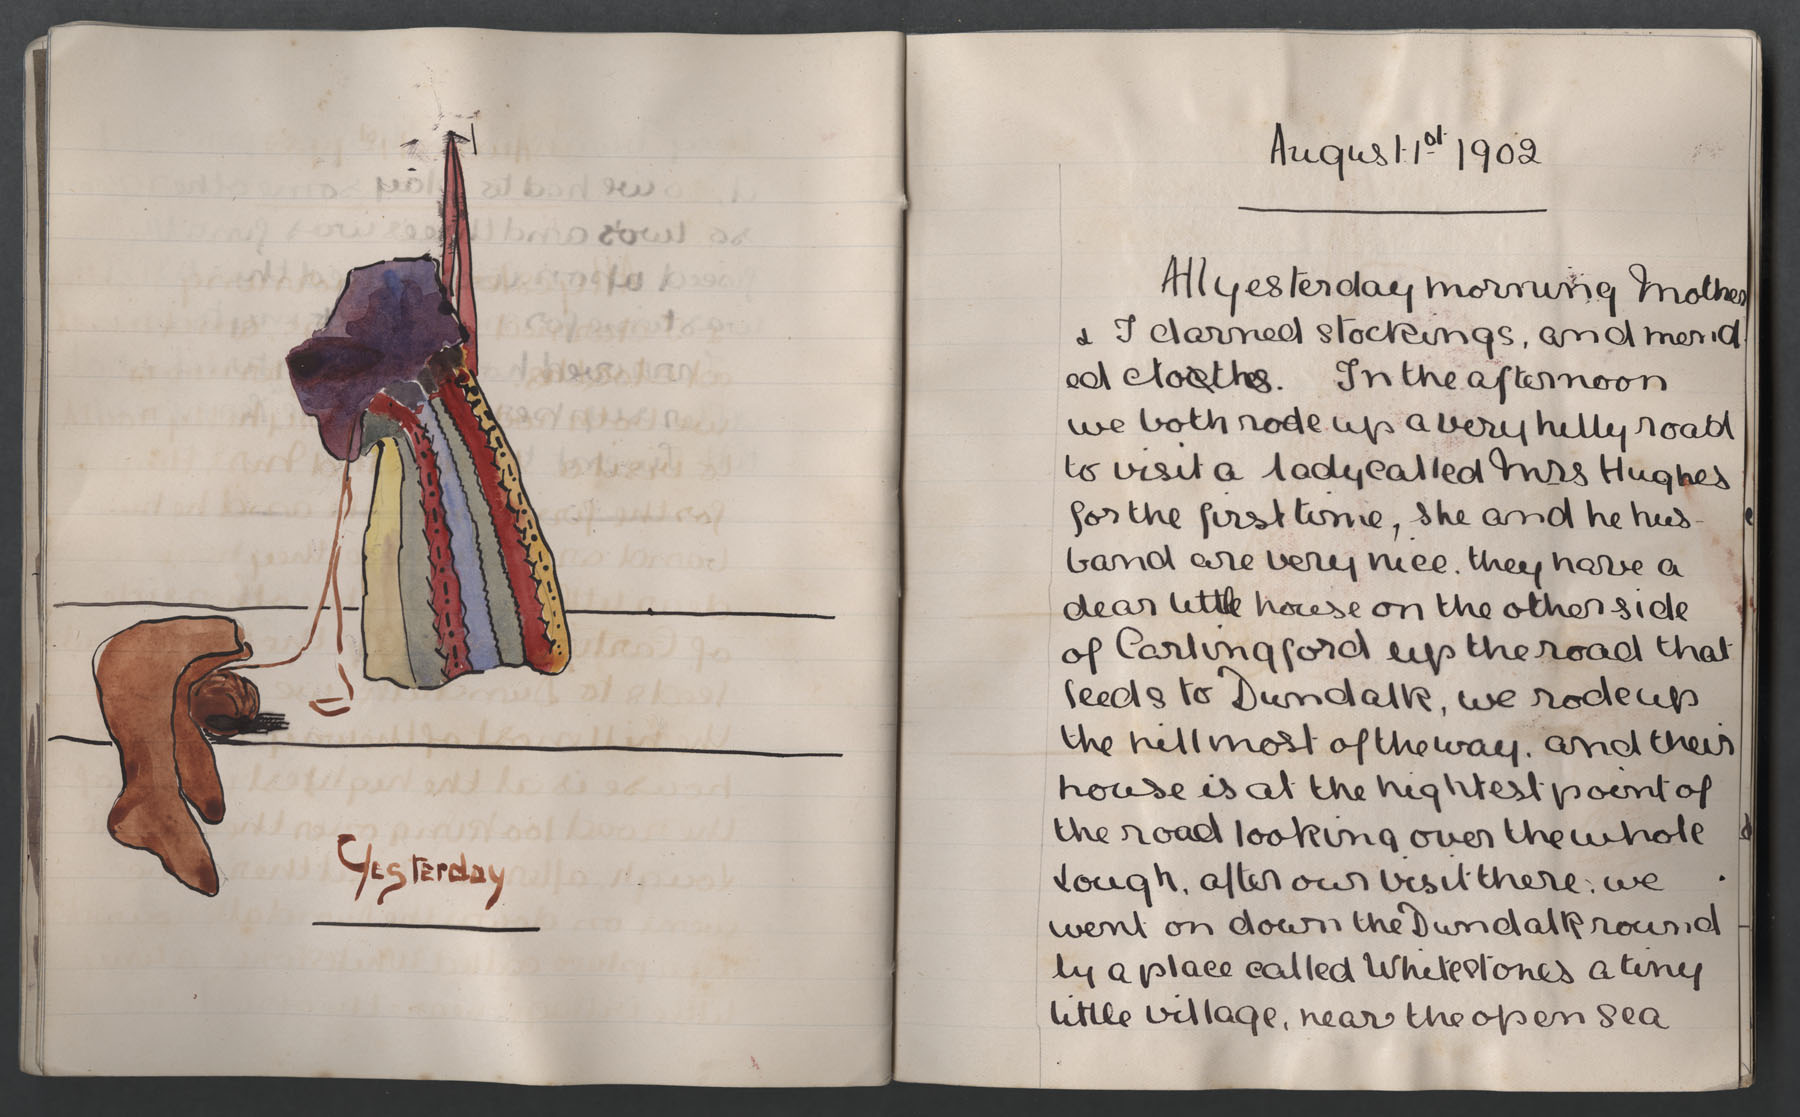 Yesterday
August 1st 1902
All yesterday morning Mother
& I darned stockings, and mend
ed cloethes. In the afternoon
we both rode up a very hilly road
to visit a lady called Mrs Hughes
for the first time, she and he hus-
band are very nice. they have a
dear little house on the other side
of Carlingford up the road that
leeds to Dundalk, we rode up
the hill most of the way. and their
house is at the hightest point of
the road looking over the whole
Lough, after our visit there, we
went on down the Dundalk round
by a place called Whitestones a tiny
little village, near the open sea